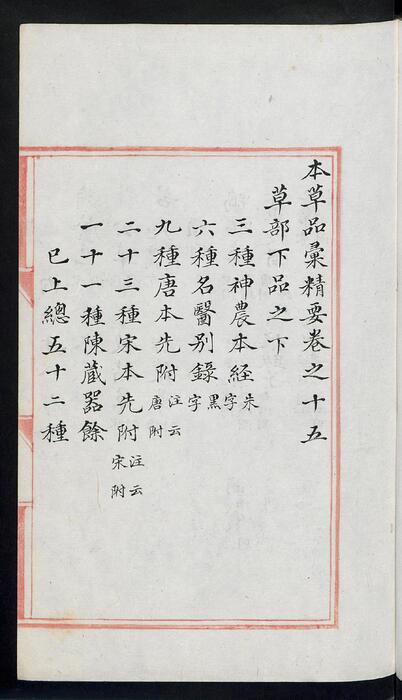 本草品彙精要卷之十五
草部下品之下
三種神農本経朱字
六種名醫别錄黑字
九種唐本先附注云唐附
二十三種宋本先附注云宋附
一十一種陳蔵器餘
已上總五十二種